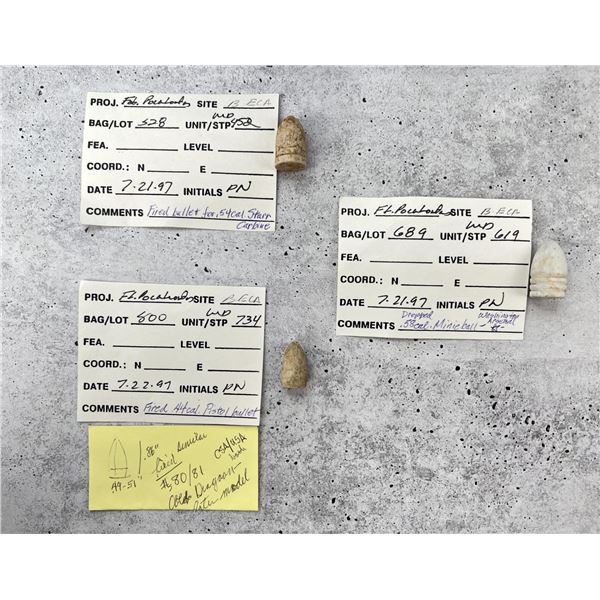 PROJ. Ft. Pocahontas SITE B ECA
BAG/LOT 528 UNIT/STP MD 452
FEA. LEVEL
COORD.: N E
DATE 7.21.97 INITIALS PN
COMMENTS Fired bullet for .54cal Starr
Carbine
PROJ. Ft. Pocahontas SITE B ECA
BAG/LOT 689 UNIT/STP MD 619
FEA. LEVEL
COORD.: N E
DATE 7.21.97 INITIALS PN
COMMENTS Dropped .58cal. Minie ball Washington Arsenal
PROJ. Ft. Pocahontas SITE B ECA
BAG/LOT 800 UNIT/STP MD 734
FEA. LEVEL
COORD.: N E
DATE 7.22.97 INITIALS PN
COMMENTS Fired .44cal Pistol bullet
.86" fired similar CSA/USA
.49-51" 80/81 both
Colt Dragoon
later model